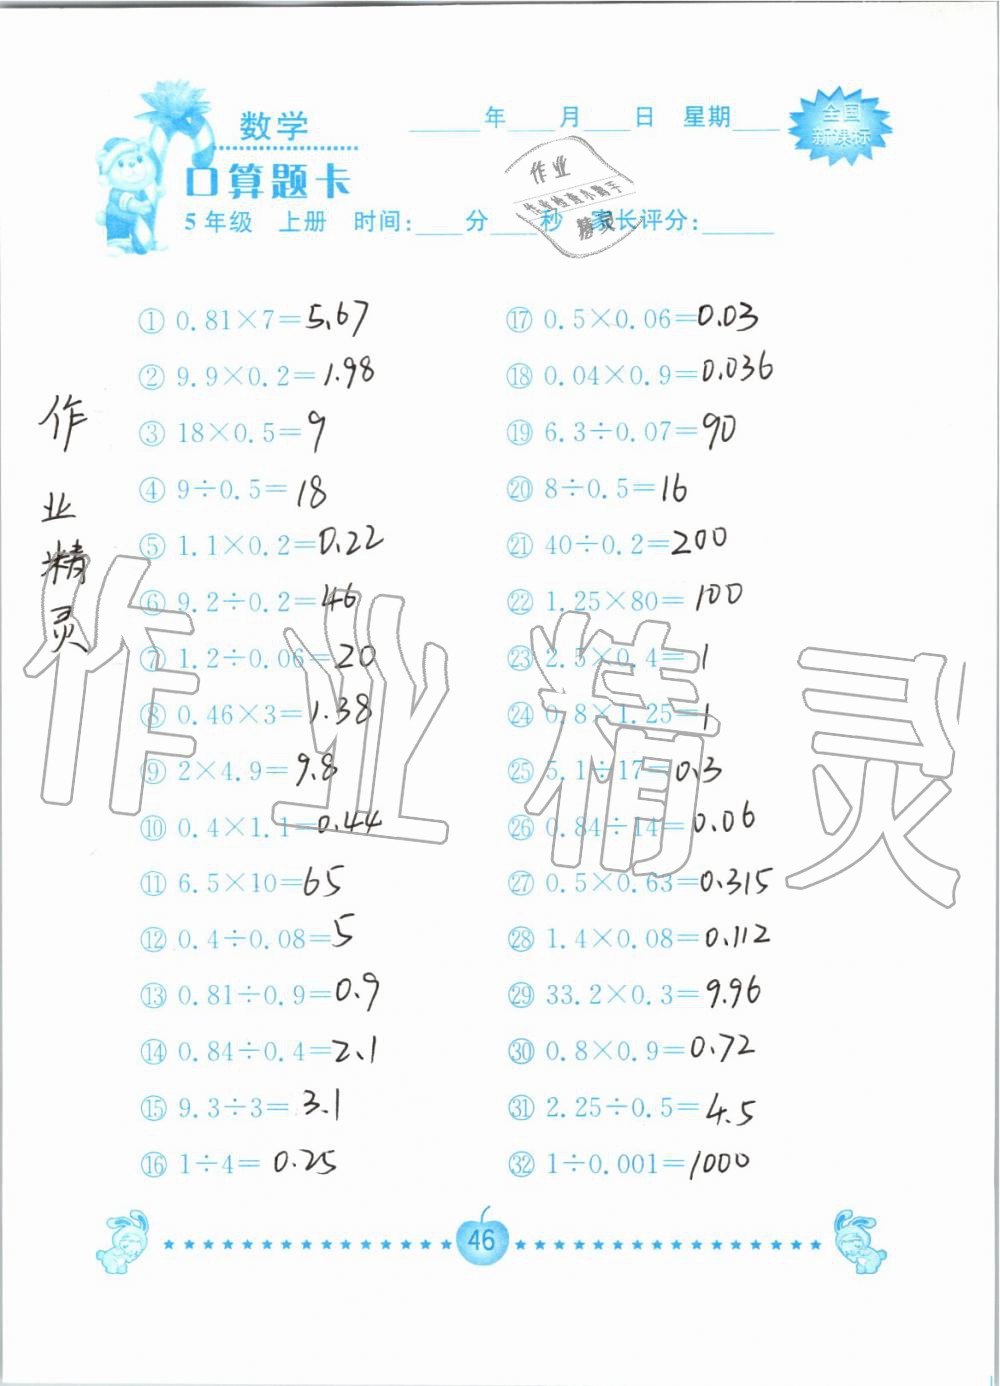 数学
____年____月____日 星期____
全国
新课标
口算题卡
作业
作业检查小助手
精灵
5年级 上册 时间:____分____秒 家长评分:____
① 0.81×7=5.67
② 9.9×0.2=1.98
③ 18×0.5=9
④ 9÷0.5=18
⑤ 1.1×0.2=0.22
⑥ 9.2÷0.2=46
⑦ 1.2÷0.06=20
⑧ 0.46×3=1.38
⑨ 2×4.9=9.8
⑩ 0.4×1.1=0.44
⑪ 6.5×10=65
⑫ 0.4÷0.08=5
⑬ 0.81÷0.9=0.9
⑭ 0.84÷0.4=2.1
⑮ 9.3÷3=3.1
⑯ 1÷4=0.25
⑰ 0.5×0.06=0.03
⑱ 0.04×0.9=0.036
⑲ 6.3÷0.07=90
⑳ 8÷0.5=16
㉑ 40÷0.2=200
㉒ 1.25×80=100
㉓ 2.5×0.4=1
㉔ 0.8×1.25=1
㉕ 5.1÷17=0.3
㉖ 0.84÷14=0.06
㉗ 0.5×0.63=0.315
㉘ 1.4×0.08=0.112
㉙ 33.2×0.3=9.96
㉚ 0.8×0.9=0.72
㉛ 2.25÷0.5=4.5
㉜ 1÷0.001=1000
作业精灵
作业精灵
46